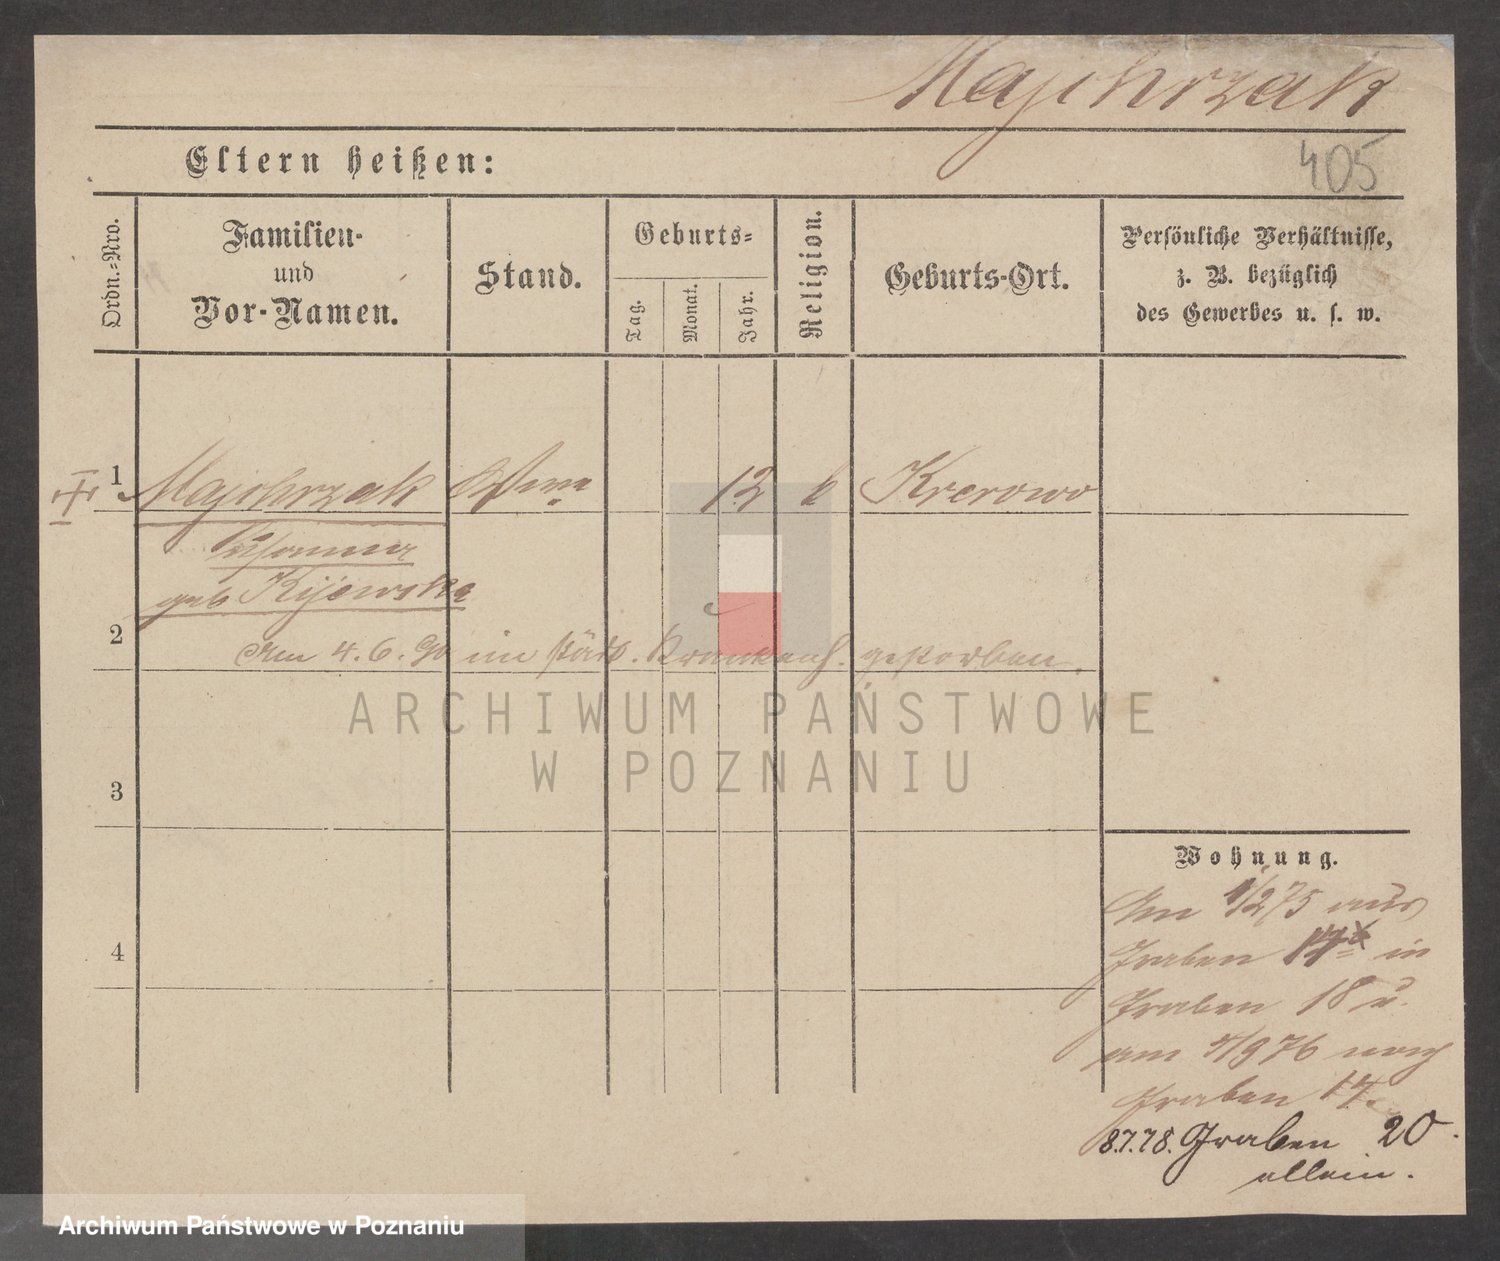 Majchrzak
Eltern heißen:
405
Ordn.=Nro.
Familien-
und
Vor-Namen.
Stand.
Geburts=
Tag.
Monat.
Jahr.
Religion.
Geburts-Ort.
Persönliche Verhältnisse,
z. B. bezüglich
des Gewerbes u. s. w.
1 Majchrzak Wwe 12 k Krerowo
Susanna
geb Kijewska
2
Am 4. 6. 90 im städt. Krankenh. gestorben.
3
4
Wohnung.
Am 1/2 75 aus
Graben in
Graben 18 u.
am 1/9 76 nach
Graben 17.
8.7.78. Graben 20.
allein.
ARCHIWUM PAŃSTWOWE
W POZNANIU
Archiwum Państwowe w Poznaniu